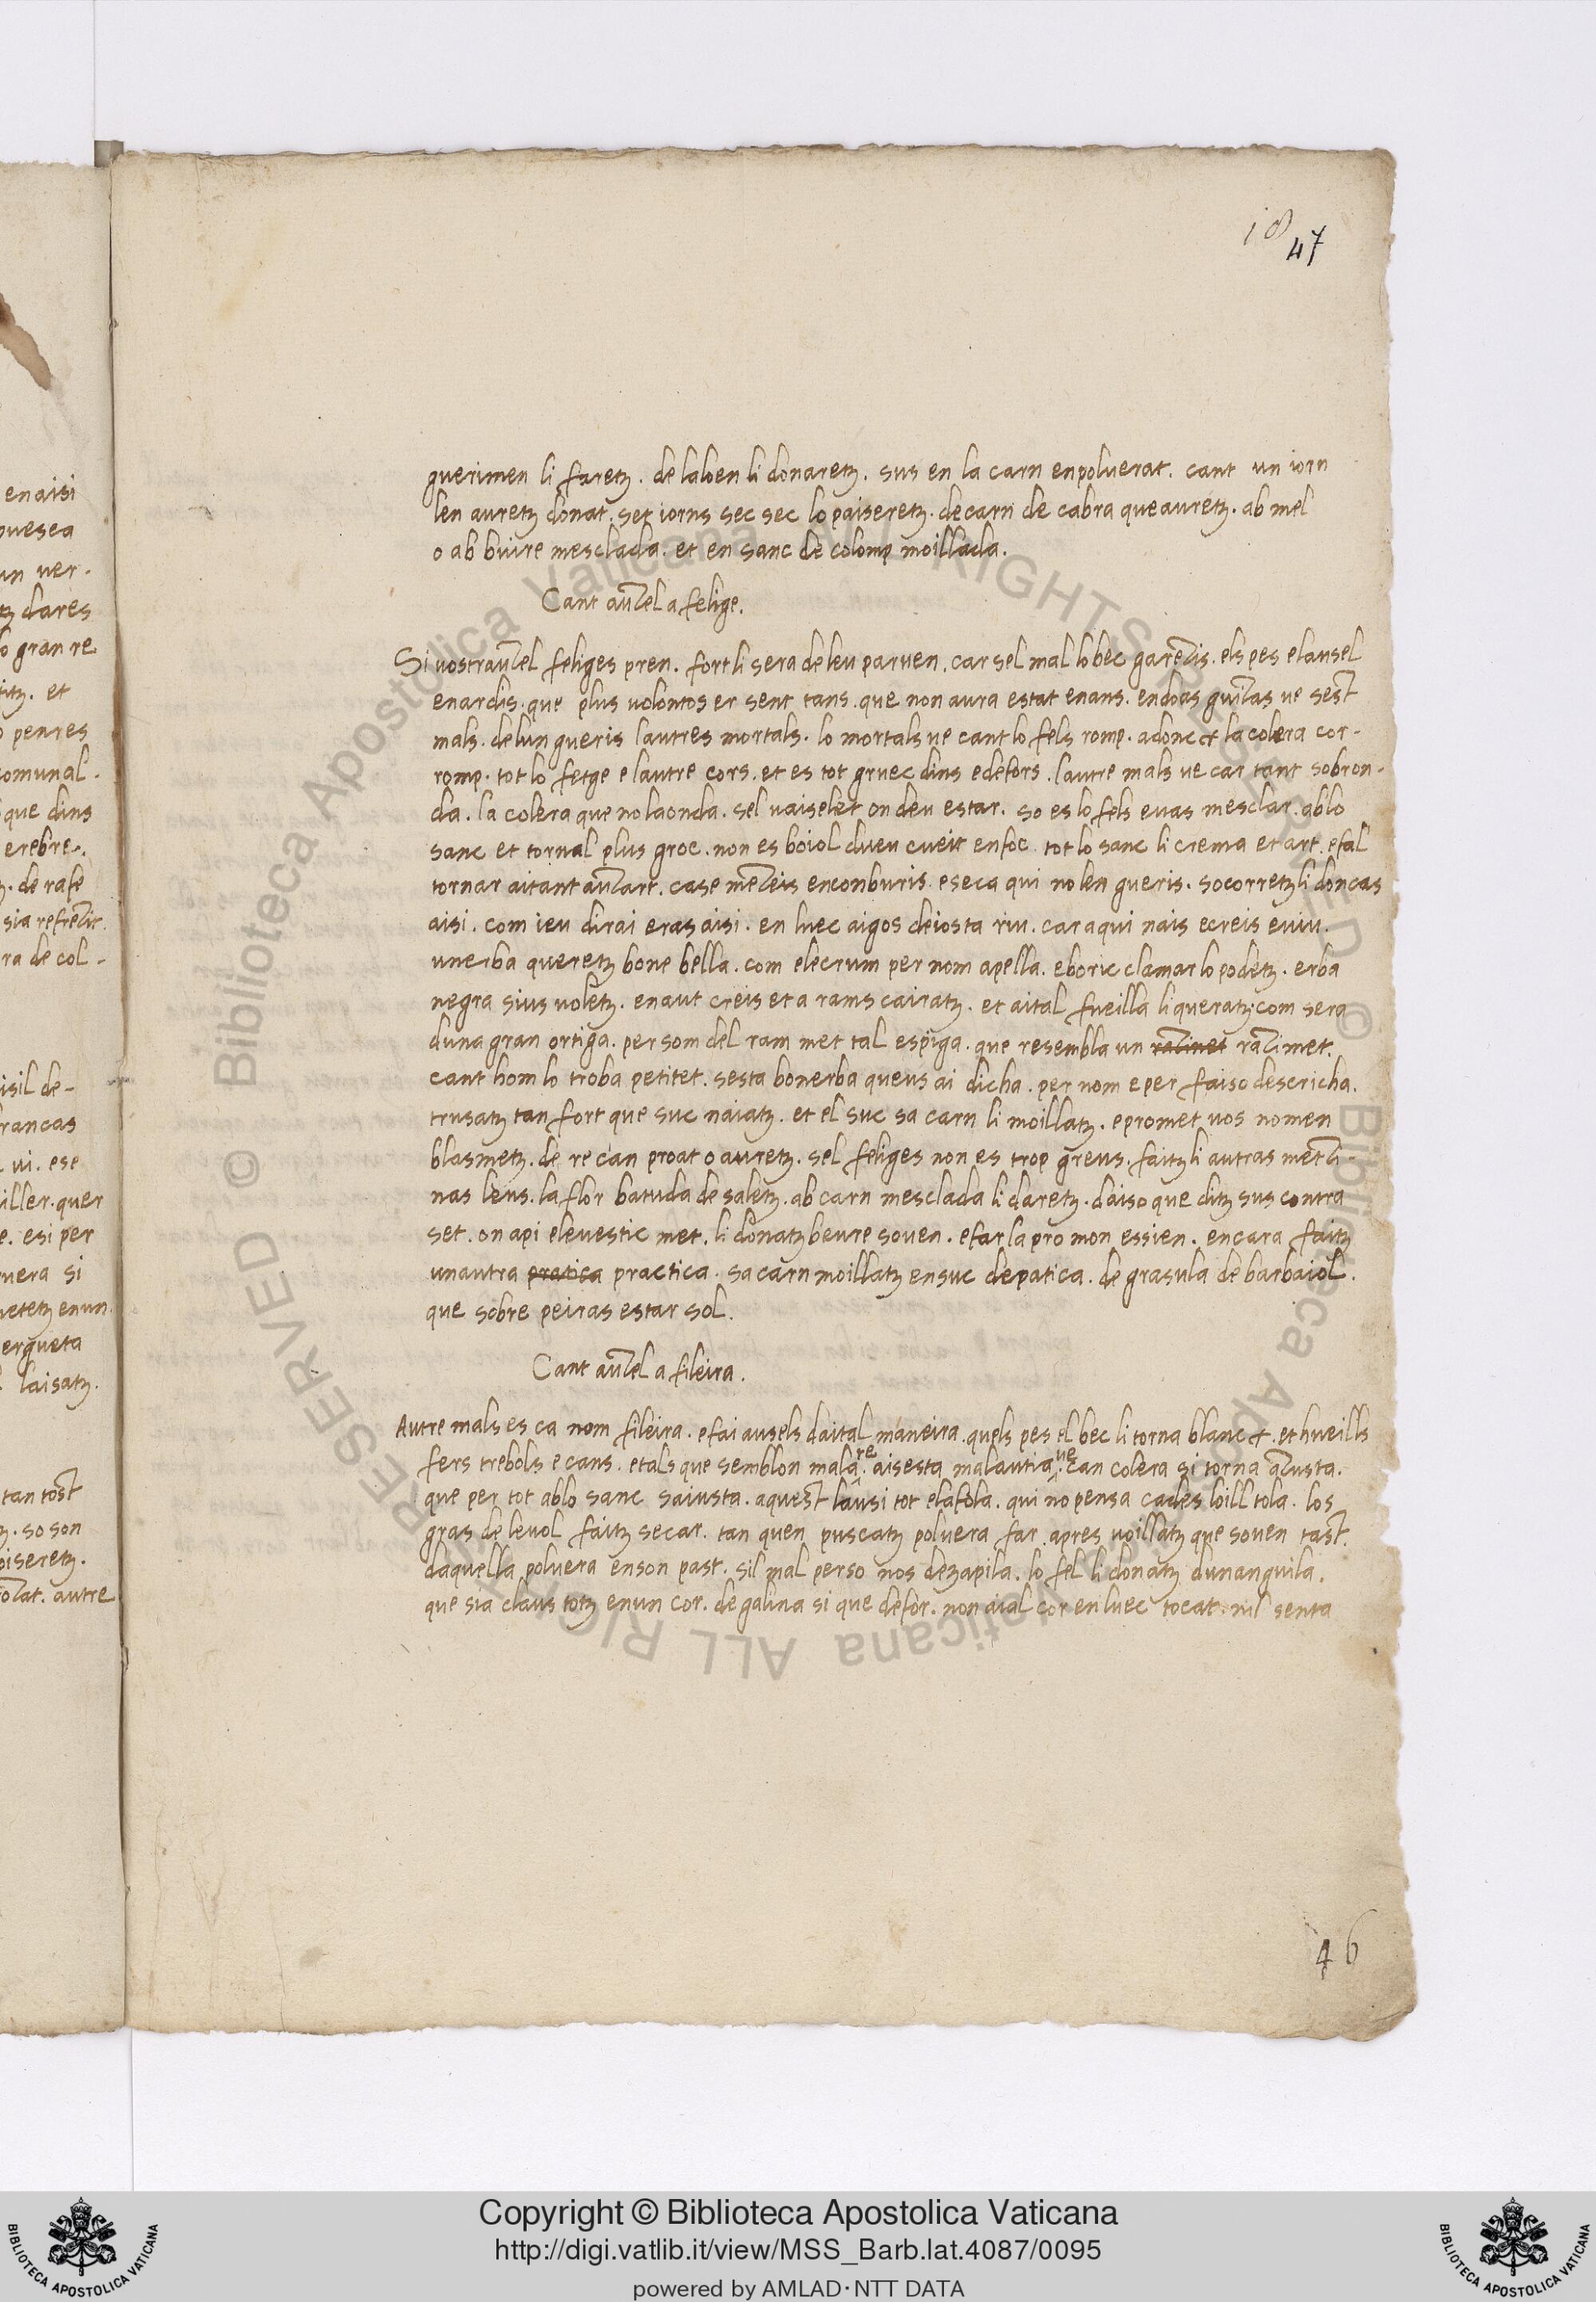 18
47
guerimen li faretz. de laloen li donaretz. sus en la carn enpoluerat. cant un iorn
len auretz donat. set iorns sec sec lo paiseretz. de carn de cabra que auretz. ab mel
o ab buire mesclada. et en sanc de colomp moillada.
Cant auzel a felige.
Si uostrauzel feliges pren. fort li sera de leu paruen. car sel mal lo bec garezis. els pes e lausel
enardis. que plus uolontos er sent tans. que non aura estat enans. en doas guizas ue sest
mals. de lun gueris lautres mortals. lo mortals ue cant lo fels romp. adonc et la colera cor-
romp. tot lo fetge e lautre cors. et es tot gruec dins e defors. lautre mals ue car tant sobron-
da. la colera que no la onda. sel uaiselet on deu estar. so es lo fels e uas mesclar. ab lo
sanc et tornal plus groc. non es boiol dueu cueit en foc. tot lo sanc li crema et art. e fal
tornar aitant auzart. case mezeis enconburis. e seca qui no len gueris. socorretz li doncas
aisi. com ieu dirai eras aisi. en luec aigos de iosta riu. car aqui nais e creis e uiu.
un erba queretz bon e bella. com elecrum per nom apella. eboric clamar lo podetz. erba
negra sius uoletz. en aut creis et a rams cairatz. et aital fueilla li queratz. com sera
duna gran ortiga. per som del ram met tal espiga. que resembla un razinet razimet.
cant hom lo troba petitet. sesta bonerba queus ai dicha. per nom e per faiso descricha.
trusatz tan fort que suc naiatz. et el suc sa carn li moillatz. e promet uos no men
blasmetz. de re can proat o auretz. sel feliges non es trop greus. faitz li autras metzi-
nas leus. la flor batuda de saletz. ab carn mesclada li daretz. daiso que ditz sus contra
set. on api e leuestic met. li donatz beure souen. e far la pro mon essien. encara faitz
unautra pratica practica. sa carn moillatz en suc depatica. de grasula de barbaiol.
que sobre peiras estar sol.
Cant auzel a fileira.
Autre mals es ca nom fileira. e fai ausels daital maneira. quels pes el bec li torna blanc et. et hueills
fers trebols e cans. e tals que semblon malare. aisesta malautia ue. can colera si torna azusta.
que per tot ab lo sanc saiusta. aquest lausi tot e lafola. qui no pensa cades loill tola. los
gras de leuol faitz secar. tan quen puscatz poluera far. apres uoillatz que souen tast.
daquella poluera en son past. sil mal per so nos dezapila. lo fel li donatz dunanguila.
que sia claus totz en un cor. de galina si que defor. non aial cor en luec tocat. nil senta
46
Copyright © Biblioteca Apostolica Vaticana
http://digi.vatlib.it/view/MSS_Barb.lat.4087/0095
powered by AMLAD·NTT DATA